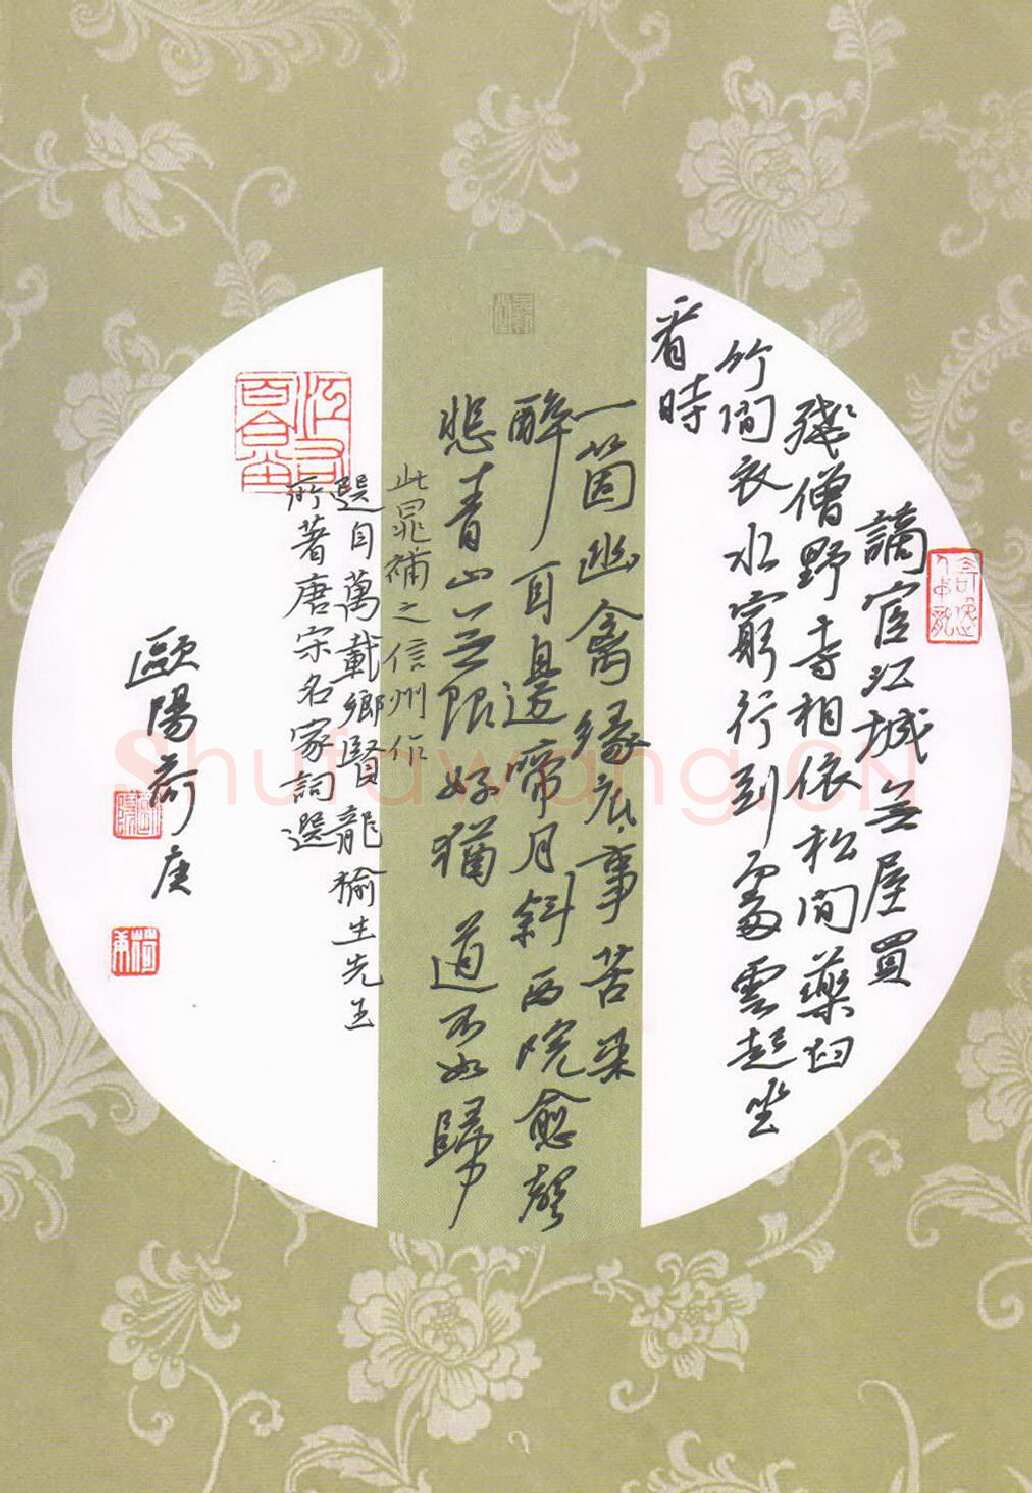 謫宦江城無屋買
殘僧野寺相依松間藥臼
竹間衣水窮行到處雲起坐
看時
一箇幽禽緣底事苦來
醉耳邊啼月斜西院愈聲
悲青山無限好猶道不如歸
此晁補之信州作
選自萬載鄉賢龍榆生先生
所著唐宋名家詞選
歐陽荷庚
Shufawang.CN